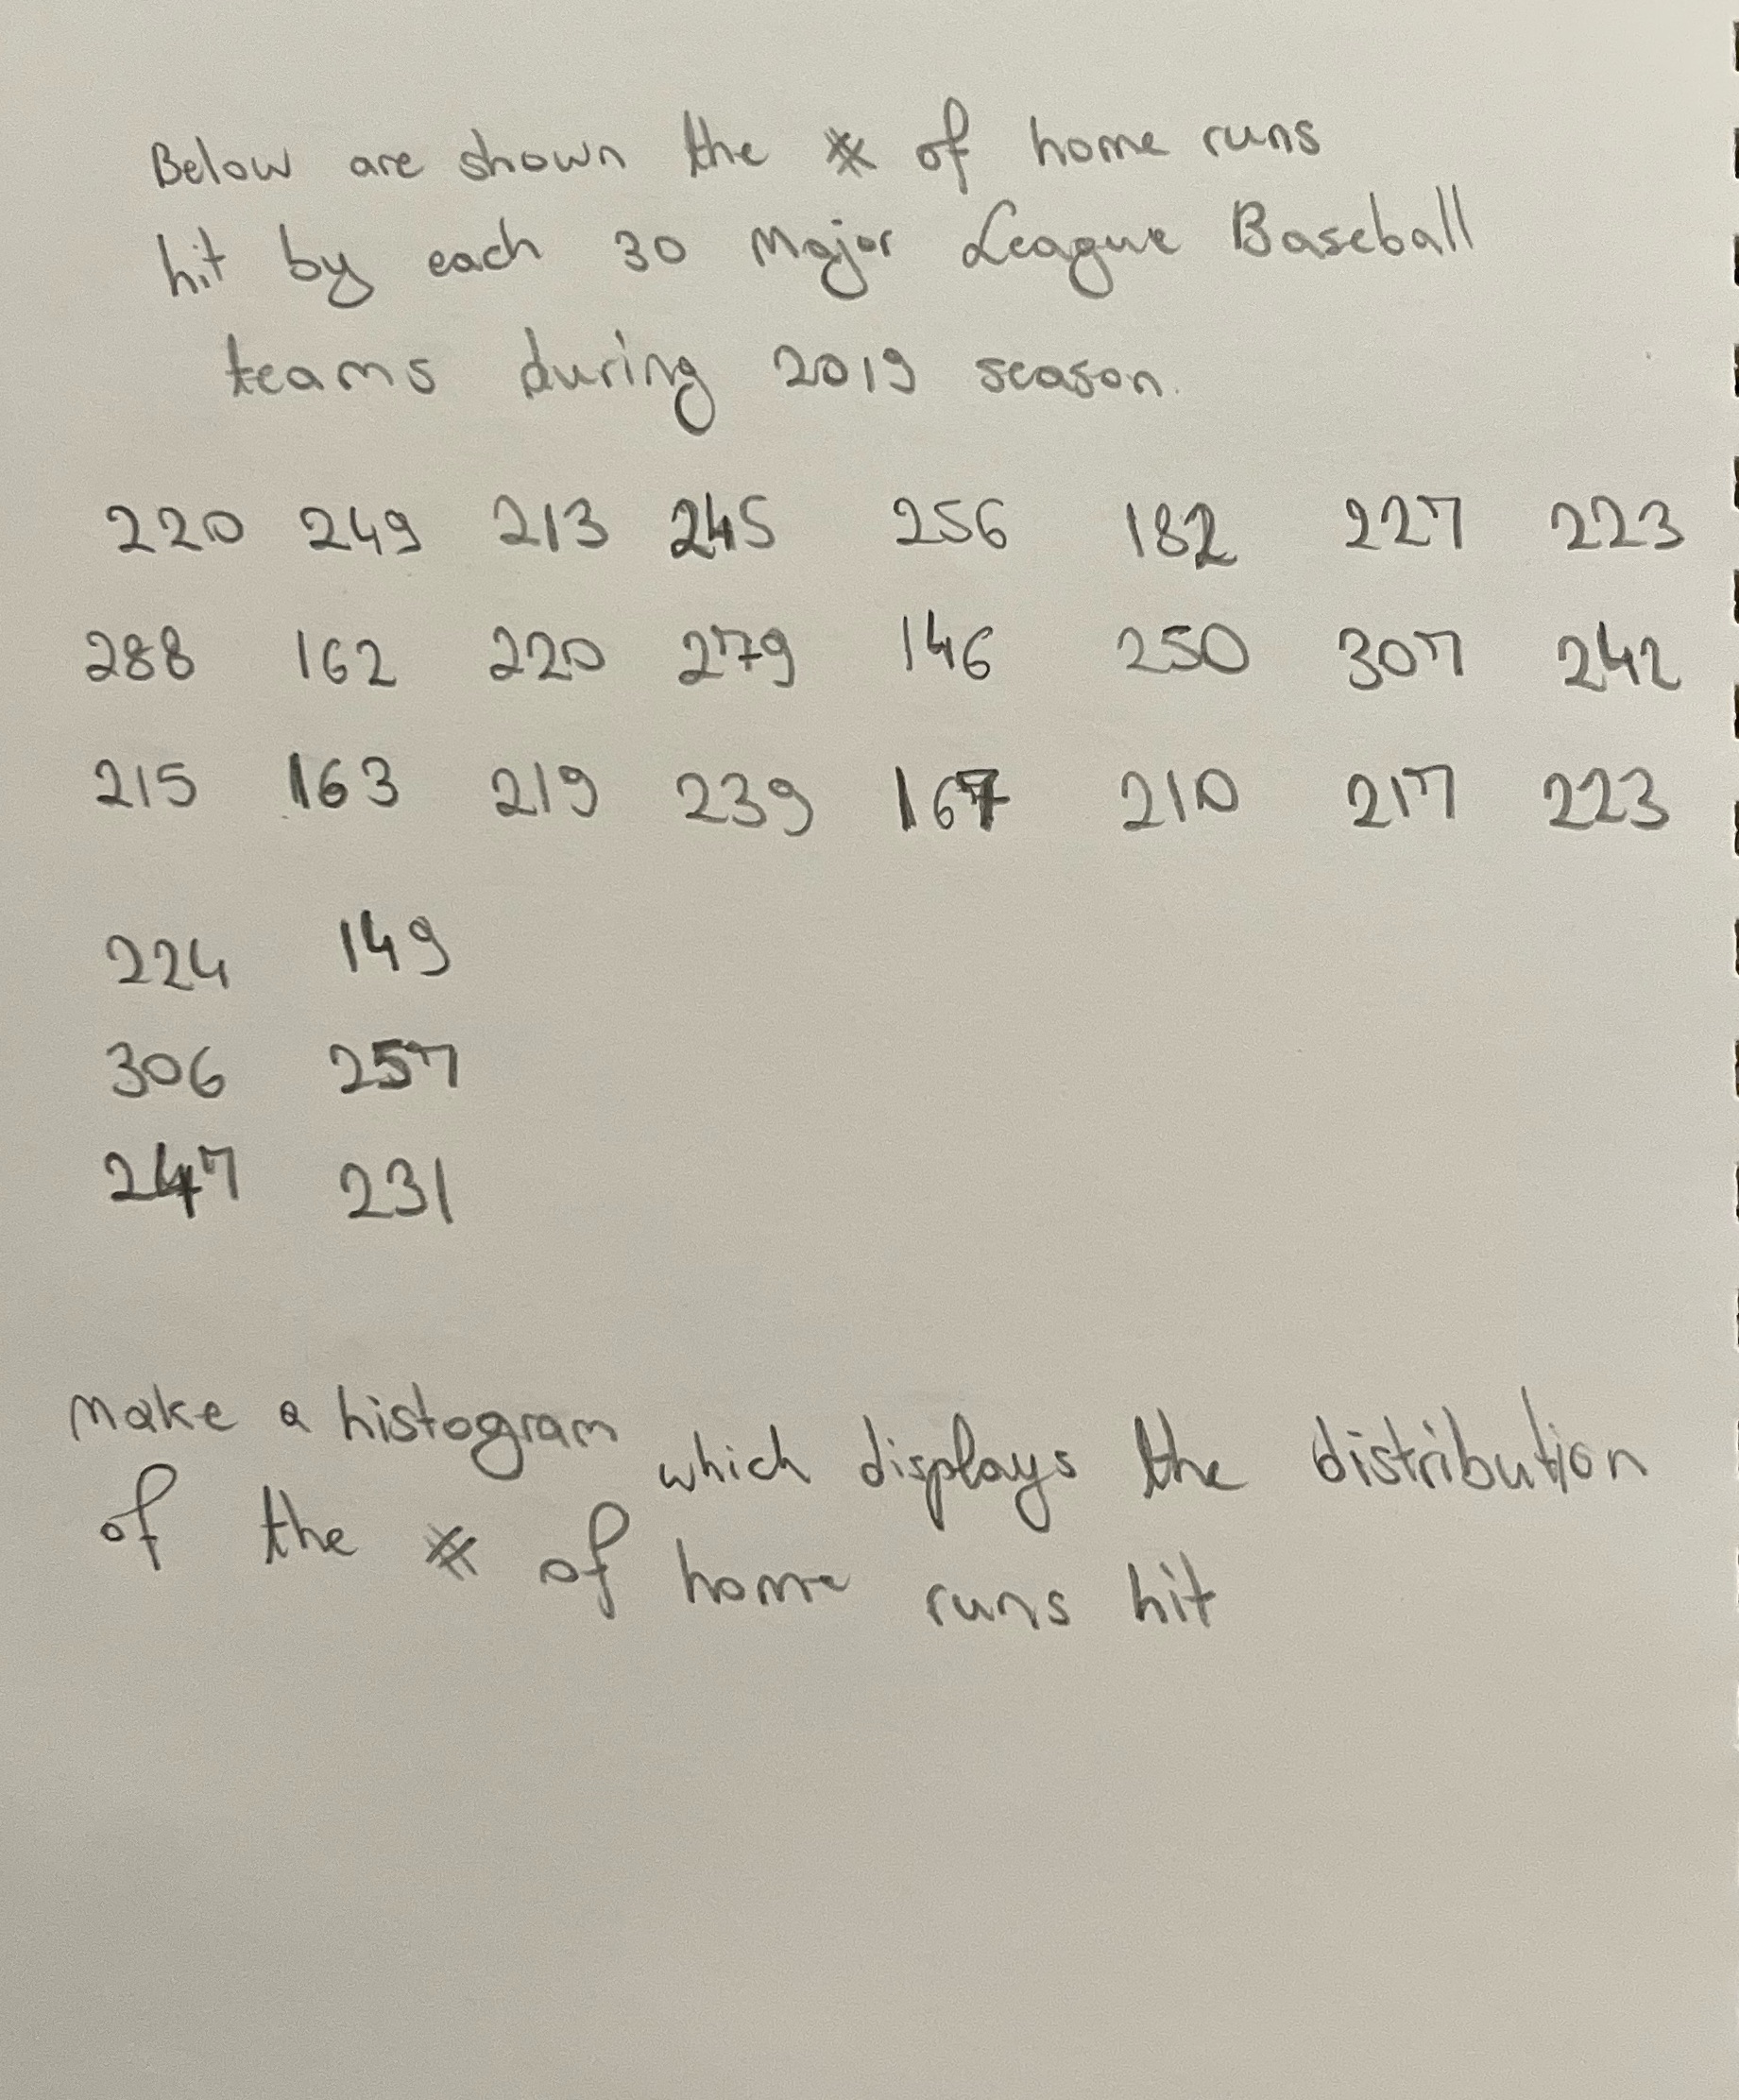 Below are shown the # of home runs
hit by each 30 Major League Baseball
teams during 2019 season.
220 249 213 245 256 182 227 223
288 162 220 279 146 250 307 242
215 163 219 239 167 210 217 223
224 149
306 257
247 231
Make a histogram which displays the distribution
of the # of home runs hit